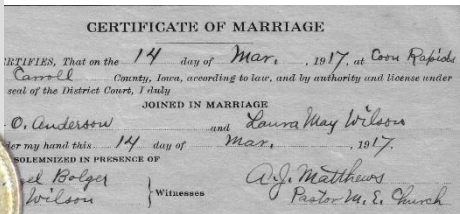 CERTIFICATE OF MARRIAGE
CERTIFIES, That on the 14 day of Mar. , 1917, at Coon Rapids
Carroll County, Iowa, according to law, and by authority and license under
seal of the District Court, I duly
JOINED IN MARRIAGE
O. Anderson and Laura May Wilson
der my hand this 14 day of Mar. , 1917.
SOLEMNIZED IN PRESENCE OF
Bolger
Wilson } Witnesses
A. J. Matthews
Pastor M. E. Church